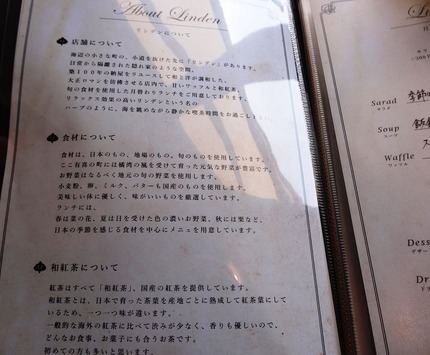 About Linden
リンデンについて
店舗について
海辺の小さな町の、小道を抜けた先に「リンデン」があります。
日常から隔離された隠れ家のような空間。
築100年の納屋をリユースして和と洋が調和した、
大正ロマンを彷彿させる店内で、甘いワッフルと和紅茶、
旬の食材を使用した月替わりランチをご用意しております。
リラックス効果の高いリンデンという名の
ハーブのように、海を眺めながら静かな喫茶時間をお過ごし
食材について
食材は、日本のもの、地場のもの、旬のものを使用しています。
ここ有高の町には橘湾の風を受けて育った元気な野菜が豊富です。
お野菜はなるべく地元の旬の野菜を使用します。
小麦粉、卵、ミルク、バターも国産のものを使用します。
美味しい体に優しく、味がいいものを厳選しています。
ランチには、
春は菜の花、夏は日を受けた色の濃いお野菜、秋には栗など、
日本の季節を感じる食材を中心にメニューを用意しています。
和紅茶について
紅茶はすべて「和紅茶」、国産の紅茶を提供しています。
和紅茶とは、日本で育った茶葉を産地ごとに熟成して紅茶葉にして
いるため、一つ一つ味が違います。
一般的な海外の紅茶に比べて渋みが少なく、香りも優しいので、
どんなお食事、お菓子にも合うお茶です。
初めての方も多いと思います。
Li
Sarad
サラダ
季節の
Soup
スープ
Waffle
ワッフル
Dess
デザー
Dr